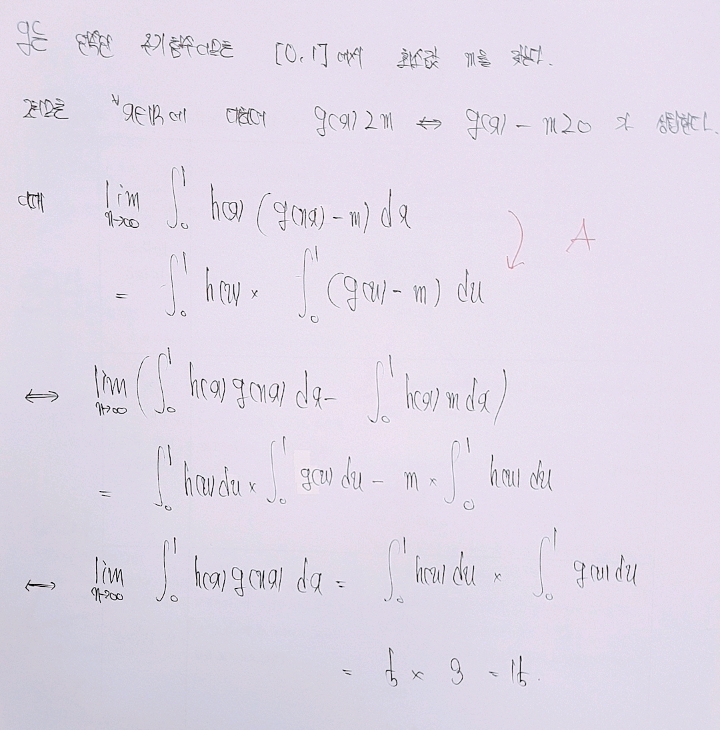 g는 연속인 주기함수이므로 [0, 1]에서 최솟값 m을 갖는다.
그러므로 ∀x∈ℝ에 대하여 g(x)≥m ⇔ g(x)-m≥0 가 성립한다.
이때 lim n→∞ ∫₀¹ h(x) (g(nx)-m) dx
A
= ∫₀¹ h(u) × ∫₀¹ (g(u)-m) du
↔ lim n→∞ (∫₀¹ h(x)g(nx) dx - ∫₀¹ h(x) m dx)
= ∫₀¹ h(u)du × ∫₀¹ g(u) du - m × ∫₀¹ h(u) du
↔ lim n→∞ ∫₀¹ h(x)g(nx) dx = ∫₀¹ h(u) du × ∫₀¹ g(u)du
= 5 × 3 = 15.